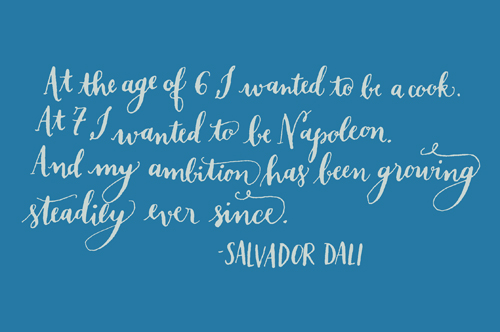 At the age of 6 I wanted to be a cook.
At 7 I wanted to be Napoleon.
And my ambition has been growing
steadily ever since.
-SALVADOR DALI